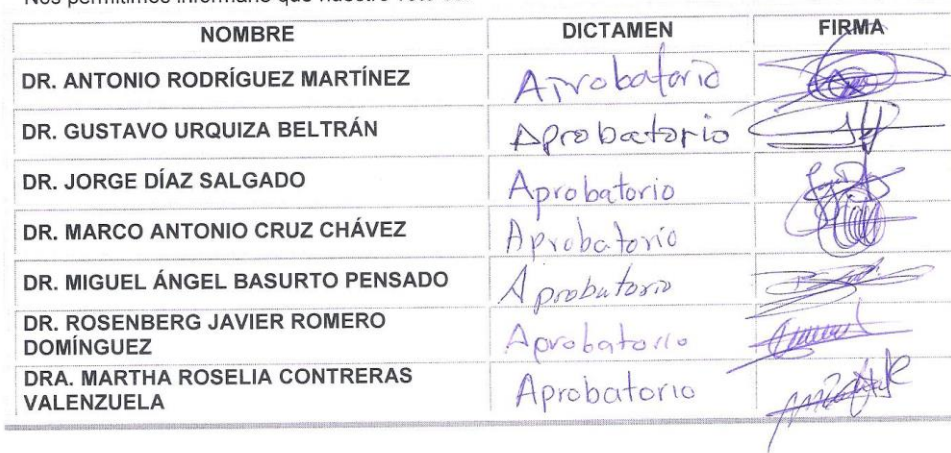 Nos permitimos informarle que nuestro
NOMBRE DICTAMEN FIRMA
DR. ANTONIO RODRÍGUEZ MARTÍNEZ Aprobatorio
DR. GUSTAVO URQUIZA BELTRÁN Aprobatorio
DR. JORGE DÍAZ SALGADO Aprobatorio
DR. MARCO ANTONIO CRUZ CHÁVEZ Aprobatorio
DR. MIGUEL ÁNGEL BASURTO PENSADO Aprobatorio
DR. ROSENBERG JAVIER ROMERO
DOMÍNGUEZ Aprobatorio
DRA. MARTHA ROSELIA CONTRERAS
VALENZUELA Aprobatorio